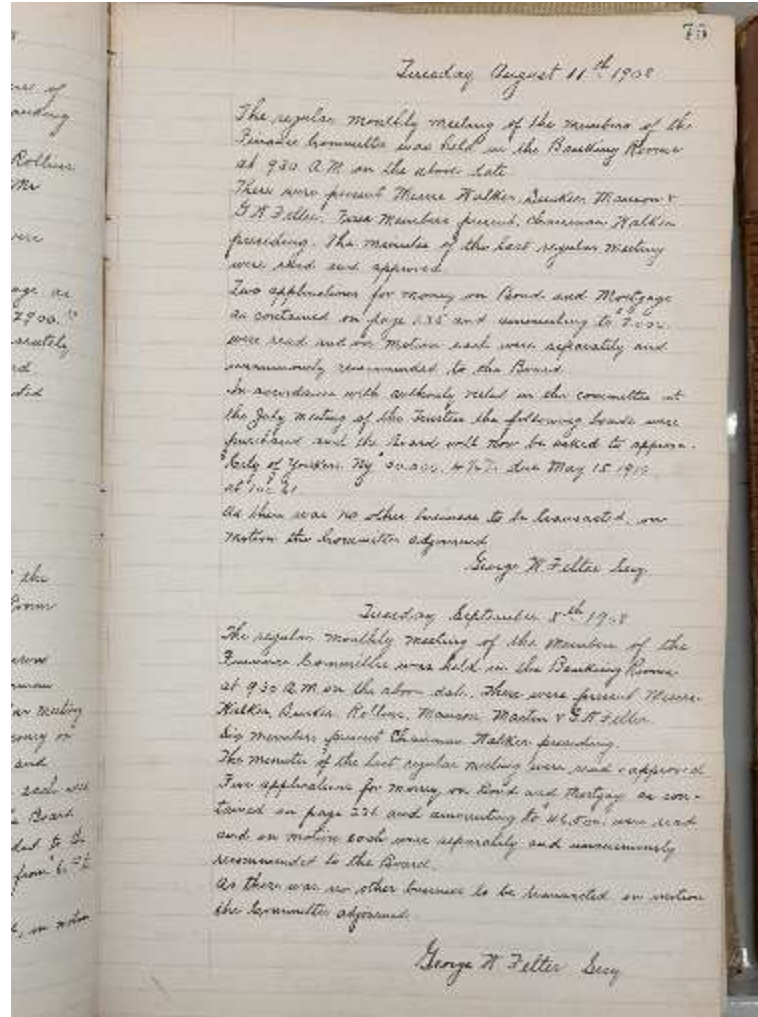 75
Tuesday August 11th 1908
The regular monthly meeting of the members of the
Finance Committee was held in the Banking Rooms
at 930 A.M. on the above date
There were present Messrs Walker, Dusker, Manson &
G W Felter. Four Members present, Chairman Walker
presiding. The minutes of the last regular Meeting
were read and approved
Two applications for money on Bond and Mortgage
as contained on page 235 and amounting to
were read and on motion each were separately and
unanimously recommended to the Board.
In accordance with authority vested in the committee at
the July meeting of the Trustees the following bonds were
purchased and the Board will now be asked to approve.
City of Yonkers. Ny due May 15
at
As there was no other business to be transacted, on
motion the Committee adjourned
George W Felter Secy
Tuesday September 8th 1908
The regular monthly meeting of the Members of the
Finance Committee was held in the Banking Rooms
at 930 A.M on the above date. There were present Messrs
Walker, Rollins, Manson Martin & G W Felter.
Six members present Chairman Walker presiding.
The minutes of the last regular meeting were read & approved
Five applications for money on Bond and Mortgage as con-
tained on page 236 and amounting to were read
and on motion each were separately and unanimously
recommended to the Board.
As there was no other business to be transacted on motion
the Committee adjourned.
George W Felter Secy